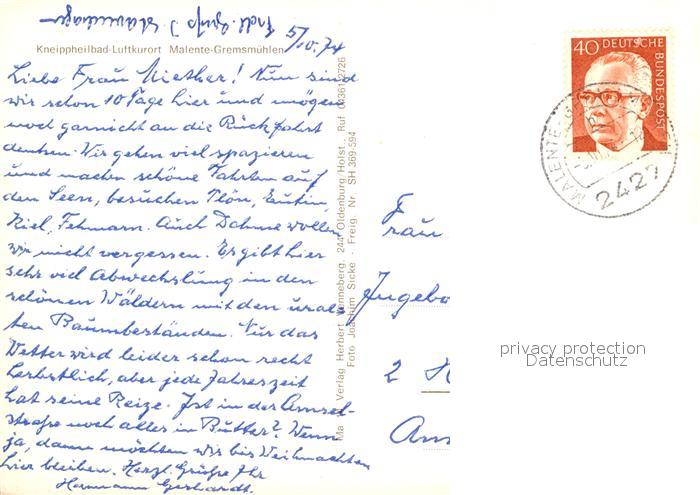 5/10.74
Kneippheilbad-Luftkurort Malente-Gremsmühlen
Liebe Frau Miether! Nun sind
wir schon 10 Tage hier und mögen
noch garnicht an die Rückfahrt
denken. Wir gehen viel spazieren
und machen schöne Fahrten auf
den Seen, besuchen Plön, Eutin,
Kiel, Fehmarn. Auch Dahme wollen
wir nicht vergessen. Es gibt hier
sehr viel Abwechslung in den
schönen Wäldern mit den ural-
ten Baumbeständen. Nur das
Wetter wird leider schon recht
herbstlich, aber jede Jahreszeit
hat seine Reize. Ist in der Amsel-
straße noch alles in Butter? Wenn
ja, dann möchten wir bis Weihnachten
hier bleiben. Herzl. Grüße Ihr
Hermann Gerhardt.
Verlag Herbert Wenneberg, 244 Oldenburg/Holst., Ruf 04361/2726
Foto Joachim Sicke - Freig. Nr. SH 369-594
40 DEUTSCHE BUNDESPOST
MALENTE-
2427
Frau
Ingebo
2 H
Ams
privacy protection
Datenschutz